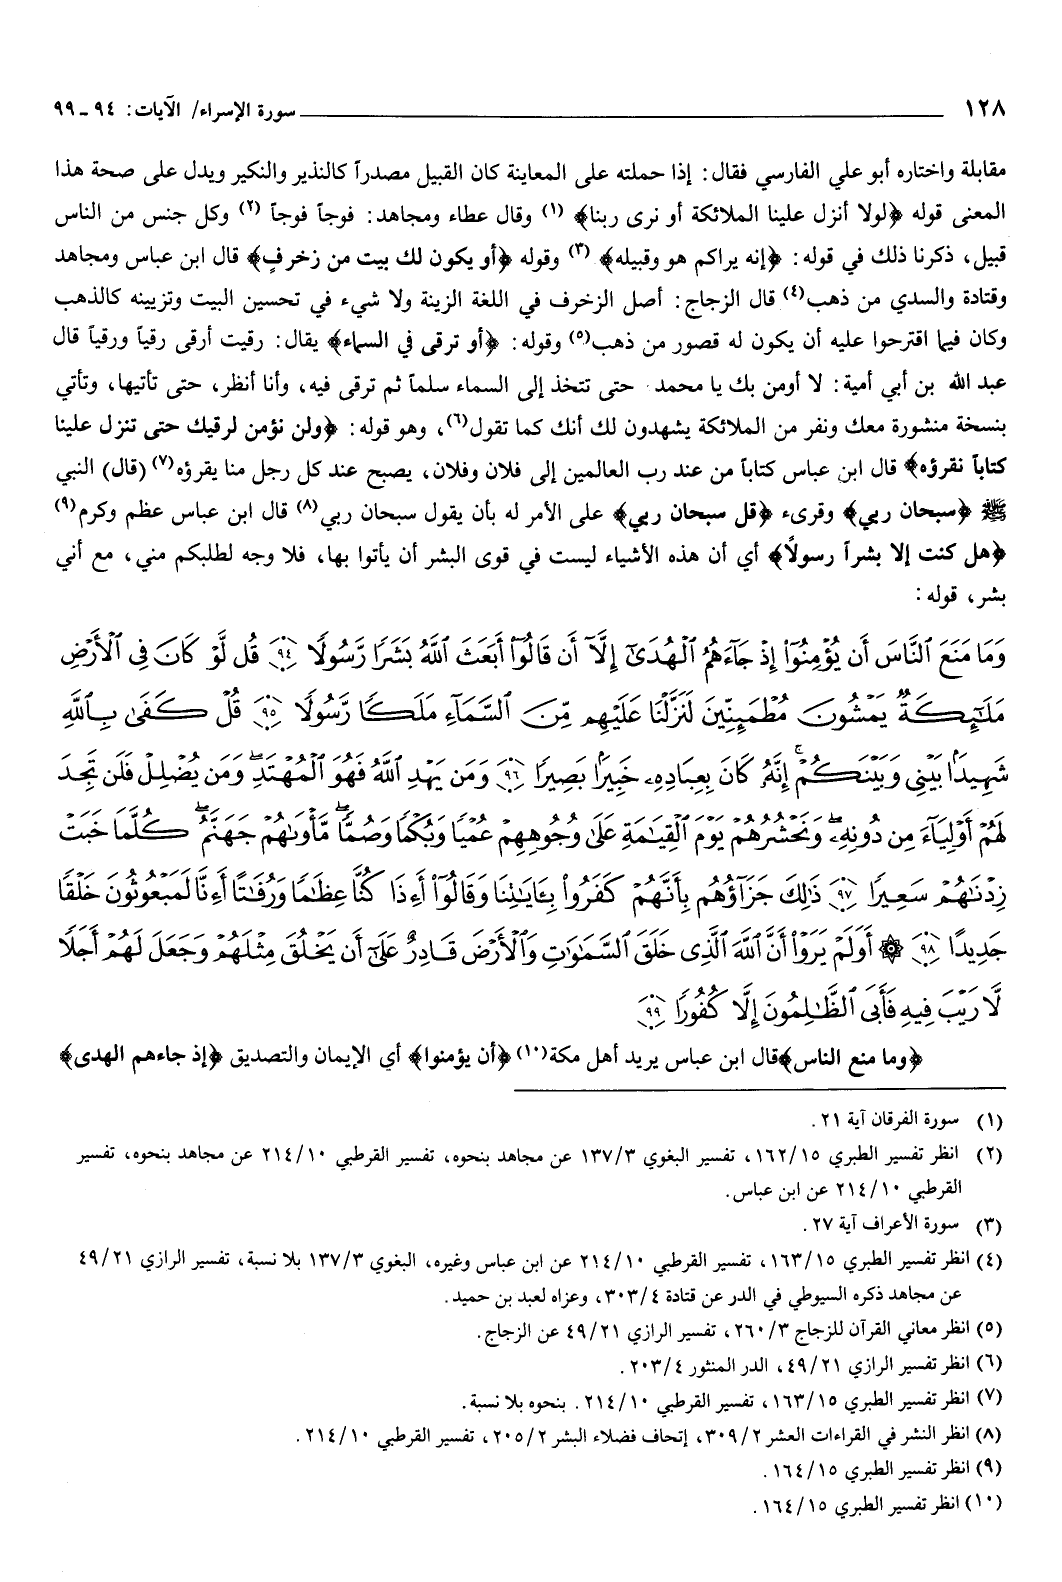 ١٢٨ سورة الإسراء/ الآيات: ٩٤ ـ ٩٩
مقابلة واختاره أبو علي الفارسي فقال: إذا حملته على المعاينة كان القبيل مصدراً كالنذير والنكير ويدل على صحة هذا
المعنى قوله ﴿لولا أنزل علينا الملائكة أو نرى ربنا﴾ (١) وقال عطاء ومجاهد: فوجاً فوجاً (٢) وكل جنس من الناس
قبيل، ذكرنا ذلك في قوله: ﴿إنه يراكم هو وقبيله﴾ (٣) وقوله ﴿أو يكون لك بيت من زخرفٍ﴾ قال ابن عباس ومجاهد
وقتادة والسدي من ذهب(٤) قال الزجاج: أصل الزخرف في اللغة الزينة ولا شيء في تحسين البيت وتزيينه كالذهب
وكان فيما اقترحوا عليه أن يكون له قصور من ذهب(٥) وقوله: ﴿أو ترقى في السماء﴾ يقال: رقيت أرقى رقياً ورقياً قال
عبد الله بن أبي أمية: لا أومن بك يا محمد حتى تتخذ إلى السماء سلماً ثم ترقى فيه، وأنا أنظر، حتى تأتيها، وتأتي
بنسخة منشورة معك ونفر من الملائكة يشهدون لك أنك كما تقول(٦)، وهو قوله: ﴿ولن نؤمن لرقيك حتى تنزل علينا
كتاباً نقرؤه﴾ قال ابن عباس كتاباً من عند رب العالمين إلى فلان وفلان، يصبح عند كل رجل منا يقرؤه(٧) (قال) النبي
ﷺ ﴿سبحان ربي﴾ وقرىء ﴿قل سبحان ربي﴾ على الأمر له بأن يقول سبحان ربي(٨) قال ابن عباس عظم وكرم(٩)
﴿هل كنت إلا بشراً رسولًا﴾ أي أن هذه الأشياء ليست في قوى البشر أن يأتوا بها، فلا وجه لطلبكم مني، مع أني
بشر، قوله:
وَمَا مَنَعَ ٱلنَّاسَ أَن يُؤْمِنُوٓا۟ إِذْ جَآءَهُمُ ٱلْهُدَىٰٓ إِلَّآ أَن قَالُوٓا۟ أَبَعَثَ ٱللَّهُ بَشَرًا رَّسُولًا ۝٩٤ قُل لَّوْ كَانَ فِى ٱلْأَرْضِ
مَلَٰٓئِكَةٌ يَمْشُونَ مُطْمَئِنِّينَ لَنَزَّلْنَا عَلَيْهِم مِّنَ ٱلسَّمَآءِ مَلَكًا رَّسُولًا ۝٩٥ قُلْ كَفَىٰ بِٱللَّهِ
شَهِيدًۢا بَيْنِى وَبَيْنَكُمْ ۚ إِنَّهُۥ كَانَ بِعِبَادِهِۦ خَبِيرًۢا بَصِيرًا ۝٩٦ وَمَن يَهْدِ ٱللَّهُ فَهُوَ ٱلْمُهْتَدِ ۖ وَمَن يُضْلِلْ فَلَن تَجِدَ
لَهُمْ أَوْلِيَآءَ مِن دُونِهِۦ ۖ وَنَحْشُرُهُمْ يَوْمَ ٱلْقِيَٰمَةِ عَلَىٰ وُجُوهِهِمْ عُمْيًا وَبُكْمًا وَصُمًّا ۖ مَّأْوَىٰهُمْ جَهَنَّمُ ۖ كُلَّمَا خَبَتْ
زِدْنَٰهُمْ سَعِيرًا ۝٩٧ ذَٰلِكَ جَزَآؤُهُم بِأَنَّهُمْ كَفَرُوا۟ بِـَٔايَٰتِنَا وَقَالُوٓا۟ أَءِذَا كُنَّا عِظَٰمًا وَرُفَٰتًا أَءِنَّا لَمَبْعُوثُونَ خَلْقًا
جَدِيدًا ۝٩٨ ۞ أَوَلَمْ يَرَوْا۟ أَنَّ ٱللَّهَ ٱلَّذِى خَلَقَ ٱلسَّمَٰوَٰتِ وَٱلْأَرْضَ قَادِرٌ عَلَىٰٓ أَن يَخْلُقَ مِثْلَهُمْ وَجَعَلَ لَهُمْ أَجَلًا
لَّا رَيْبَ فِيهِ فَأَبَى ٱلظَّٰلِمُونَ إِلَّا كُفُورًا ۝٩٩
﴿وما منع الناس﴾قال ابن عباس يريد أهل مكة(١٠) ﴿أن يؤمنوا﴾ أي الإيمان والتصديق ﴿إذ جاءهم الهدى﴾
(١) سورة الفرقان آية ٢١.
(٢) انظر تفسير الطبري ١٦٢/١٥، تفسير البغوي ١٣٧/٣ عن مجاهد بنحوه، تفسير القرطبي ٢١٤/١٠ عن مجاهد بنحوه، تفسير
القرطبي ٢١٤/١٠ عن ابن عباس.
(٣) سورة الأعراف آية ٢٧.
(٤) انظر تفسير الطبري ١٦٣/١٥، تفسير القرطبي ٢١٤/١٠ عن ابن عباس وغيره، البغوي ١٣٧/٣ بلا نسبة، تفسير الرازي ٤٩/٢١
عن مجاهد ذكره السيوطي في الدر عن قتادة ٣٠٣/٤، وعزاه لعبد بن حميد.
(٥) انظر معاني القرآن للزجاج ٢٦٠/٣، تفسير الرازي ٤٩/٢١ عن الزجاج.
(٦) انظر تفسير الرازي ٤٩/٢١، الدر المنثور ٢٠٣/٤.
(٧) انظر تفسير الطبري ١٦٣/١٥، تفسير القرطبي ٢١٤/١٠. بنحوه بلا نسبة.
(٨) انظر النشر في القراءات العشر ٣٠٩/٢، إتحاف فضلاء البشر ٢٠٥/٢، تفسير القرطبي ٢١٤/١٠.
(٩) انظر تفسير الطبري ١٦٤/١٥.
(١٠) انظر تفسير الطبري ١٦٤/١٥.